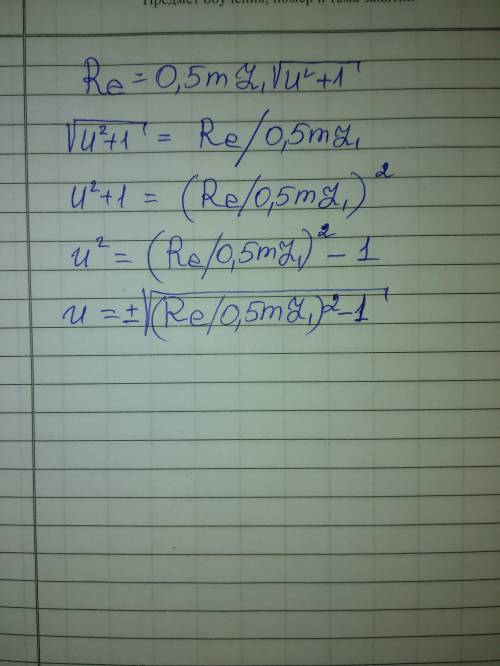 Предмет обучения, номер и тема занятия
Re = 0,5mZ₁√(u²+1)
√(u²+1) = Re/0,5mZ₁
u²+1 = (Re/0,5mZ₁)²
u² = (Re/0,5mZ₁)² - 1
u = ±√((Re/0,5mZ₁)²-1)